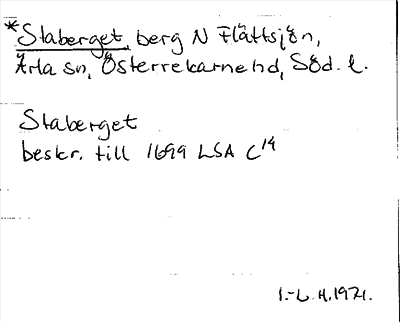 *Staberget, berg N Flättsjön,
Ärla sn, Österrekarne hd, Söd. l.
Staberget
beskr. till 1699 LSA C14
I.-L. H. 1971.